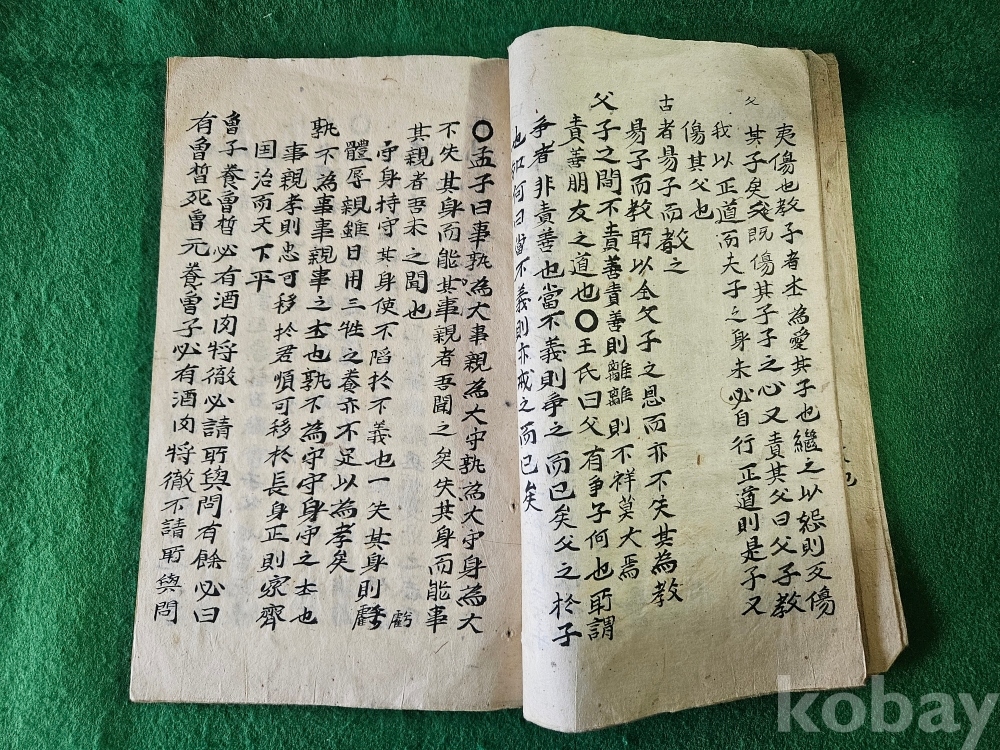 夷傷也教子者本為愛其子也繼之以怒則反傷
其子矣父既傷其子子之心又責其父曰父子教
父
我以正道而夫子之身未必自行正道則是子又
傷其父也
古者易子而教之
易子而教所以全父子之恩而亦不失其為教
父子之間不責善責善則離離則不祥莫大焉
責善朋友之道也〇王氏曰父有争子何也所謂
争者非責善也當不義則争之而已矣父之於子
也如何曰當不義則亦戒之而已矣
〇孟子曰事孰為大事親為大守孰為大守身為大
不失其身而能其事親者吾聞之矣失其身而能事
其親者吾未之聞也
守身持守其身使不陷於不義也一失其身則虧
虧
體辱親雖日用三牲之養亦不足以為孝矣
孰不為事事親事之本也孰不為守守身守之本也
事親孝則忠可移於君順可移於長身正則家齊
国治而天下平
曾子養曾晳必有酒肉將徹必請所與問有餘必曰
有曾晳死曾元養曾子必有酒肉將徹不請所與問
kobay